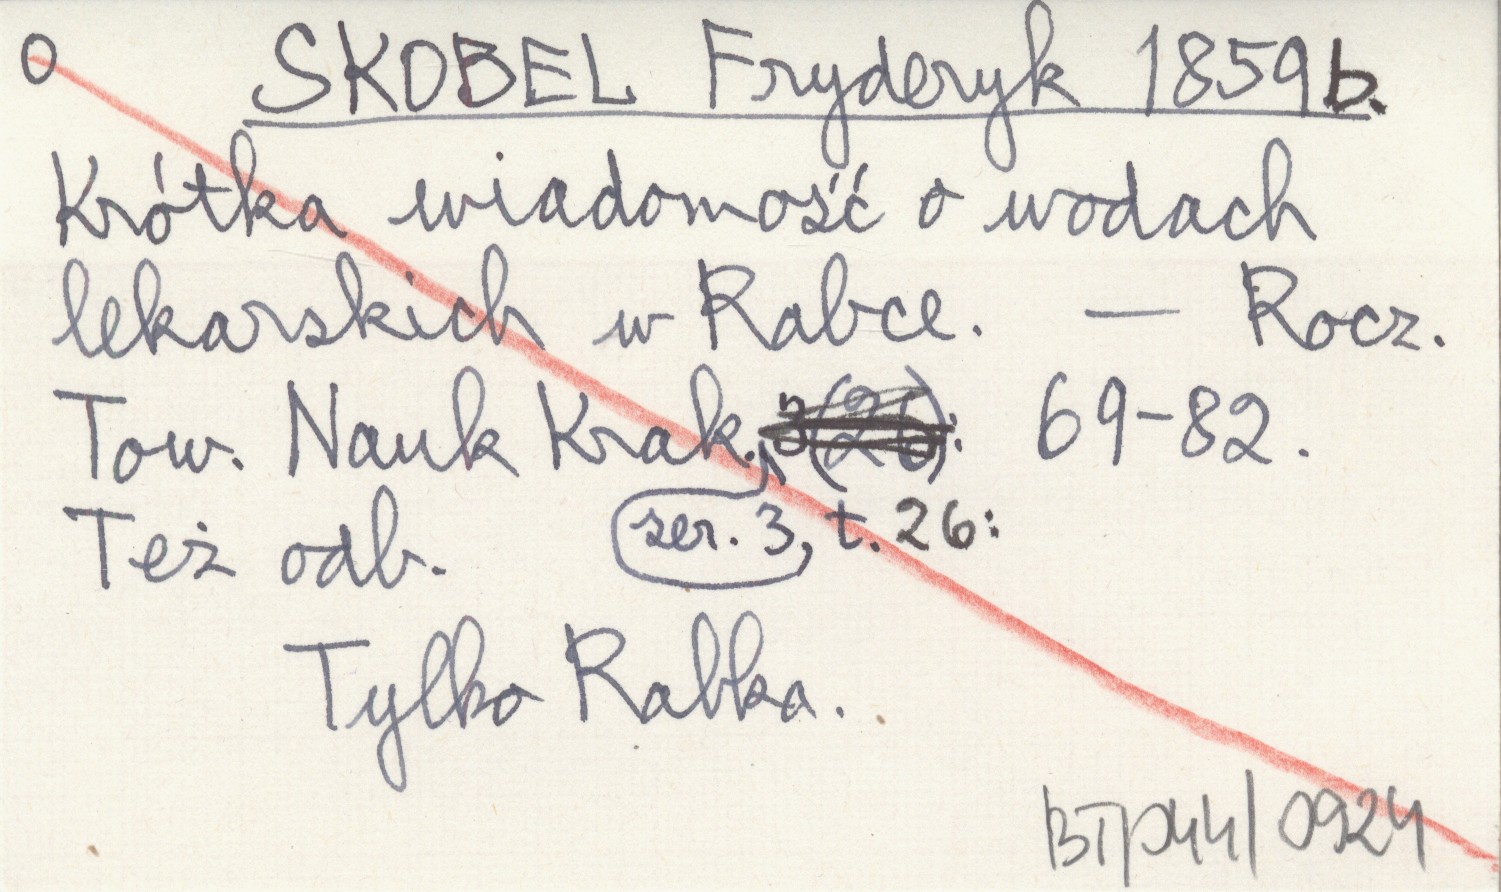 O SKOBEL Fryderyk 1859b.
Krótka wiadomość o wodach
lekarskich w Rabce. — Rocz.
Tow. Nauk Krak. 3(26): 69-82.
ser. 3, t. 26:
Też odb.
Tylko Rabka.
BT/044/0924